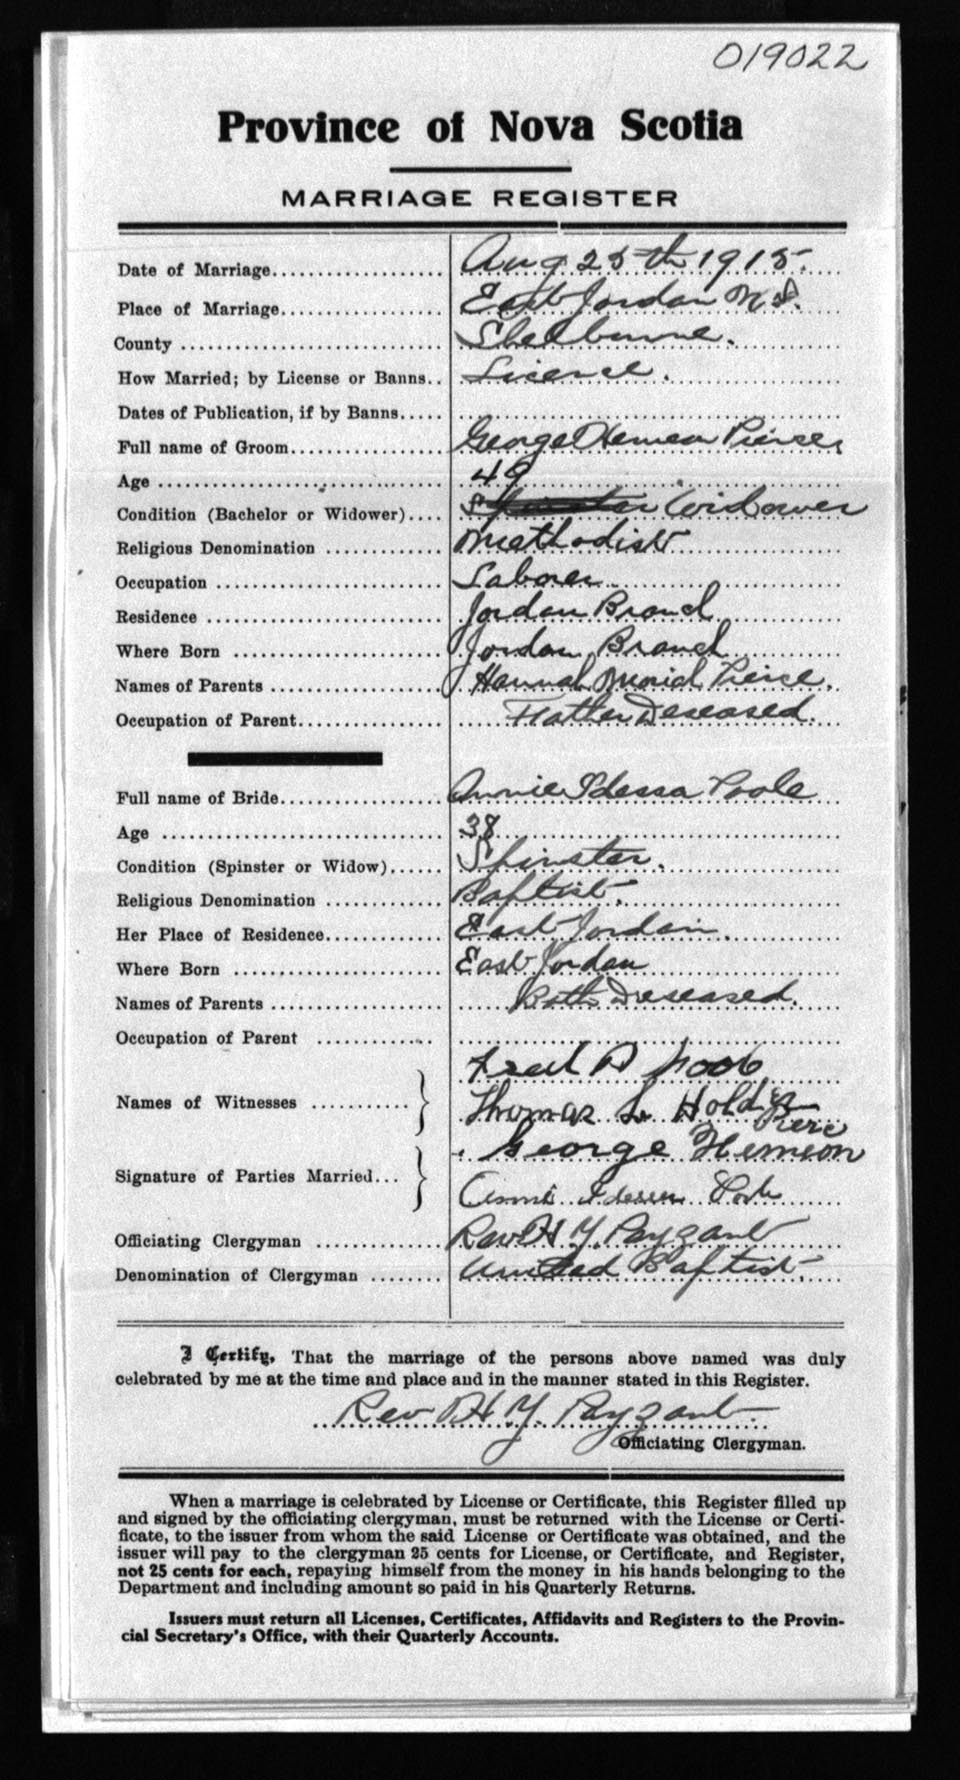 019022
Province of Nova Scotia
MARRIAGE REGISTER
Date of Marriage.................... Aug 25th 1915.
Place of Marriage................... East Jordan N.S.
County ............................. Shelburne.
How Married; by License or Banns.. Licence.
Dates of Publication, if by Banns.....
Full name of Groom.................. George Hemeon Pierce,
Age ................................ 49
Condition (Bachelor or Widower).... Spinster Widower
Religious Denomination ............. Methodist
Occupation ......................... Laborer
Residence .......................... Jordan Branch
Where Born ......................... Jordan Branch
Names of Parents ................... Hannah Pierce.
Occupation of Parent................ Father Deseased.
Full name of Bride.................. Annie Idessa Poole
Age ................................ 38
Condition (Spinster or Widow)...... Spinster.
Religious Denomination ............. Baptist.
Her Place of Residence.............. East Jordan.
Where Born ......................... East Jordan
Names of Parents ................... Both Deseased.
Occupation of Parent .............
Names of Witnesses ........... Fred
Thomas L Holden
Pierc
Signature of Parties Married... George Hemeon
Annie
Officiating Clergyman .............. Rev H Y. Payzant
Denomination of Clergyman ........ United Baptist.
I Certify, That the marriage of the persons above named was duly
celebrated by me at the time and place and in the manner stated in this Register.
Rev H Y. Payzant.
Officiating Clergyman.
When a marriage is celebrated by License or Certificate, this Register filled up
and signed by the officiating clergyman, must be returned with the License or Certi-
ficate, to the issuer from whom the said License or Certificate was obtained, and the
issuer will pay to the clergyman 25 cents for License, or Certificate, and Register,
not 25 cents for each, repaying himself from the money in his hands belonging to the
Department and including amount so paid in his Quarterly Returns.
Issuers must return all Licenses, Certificates, Affidavits and Registers to the Provin-
cial Secretary's Office, with their Quarterly Accounts.